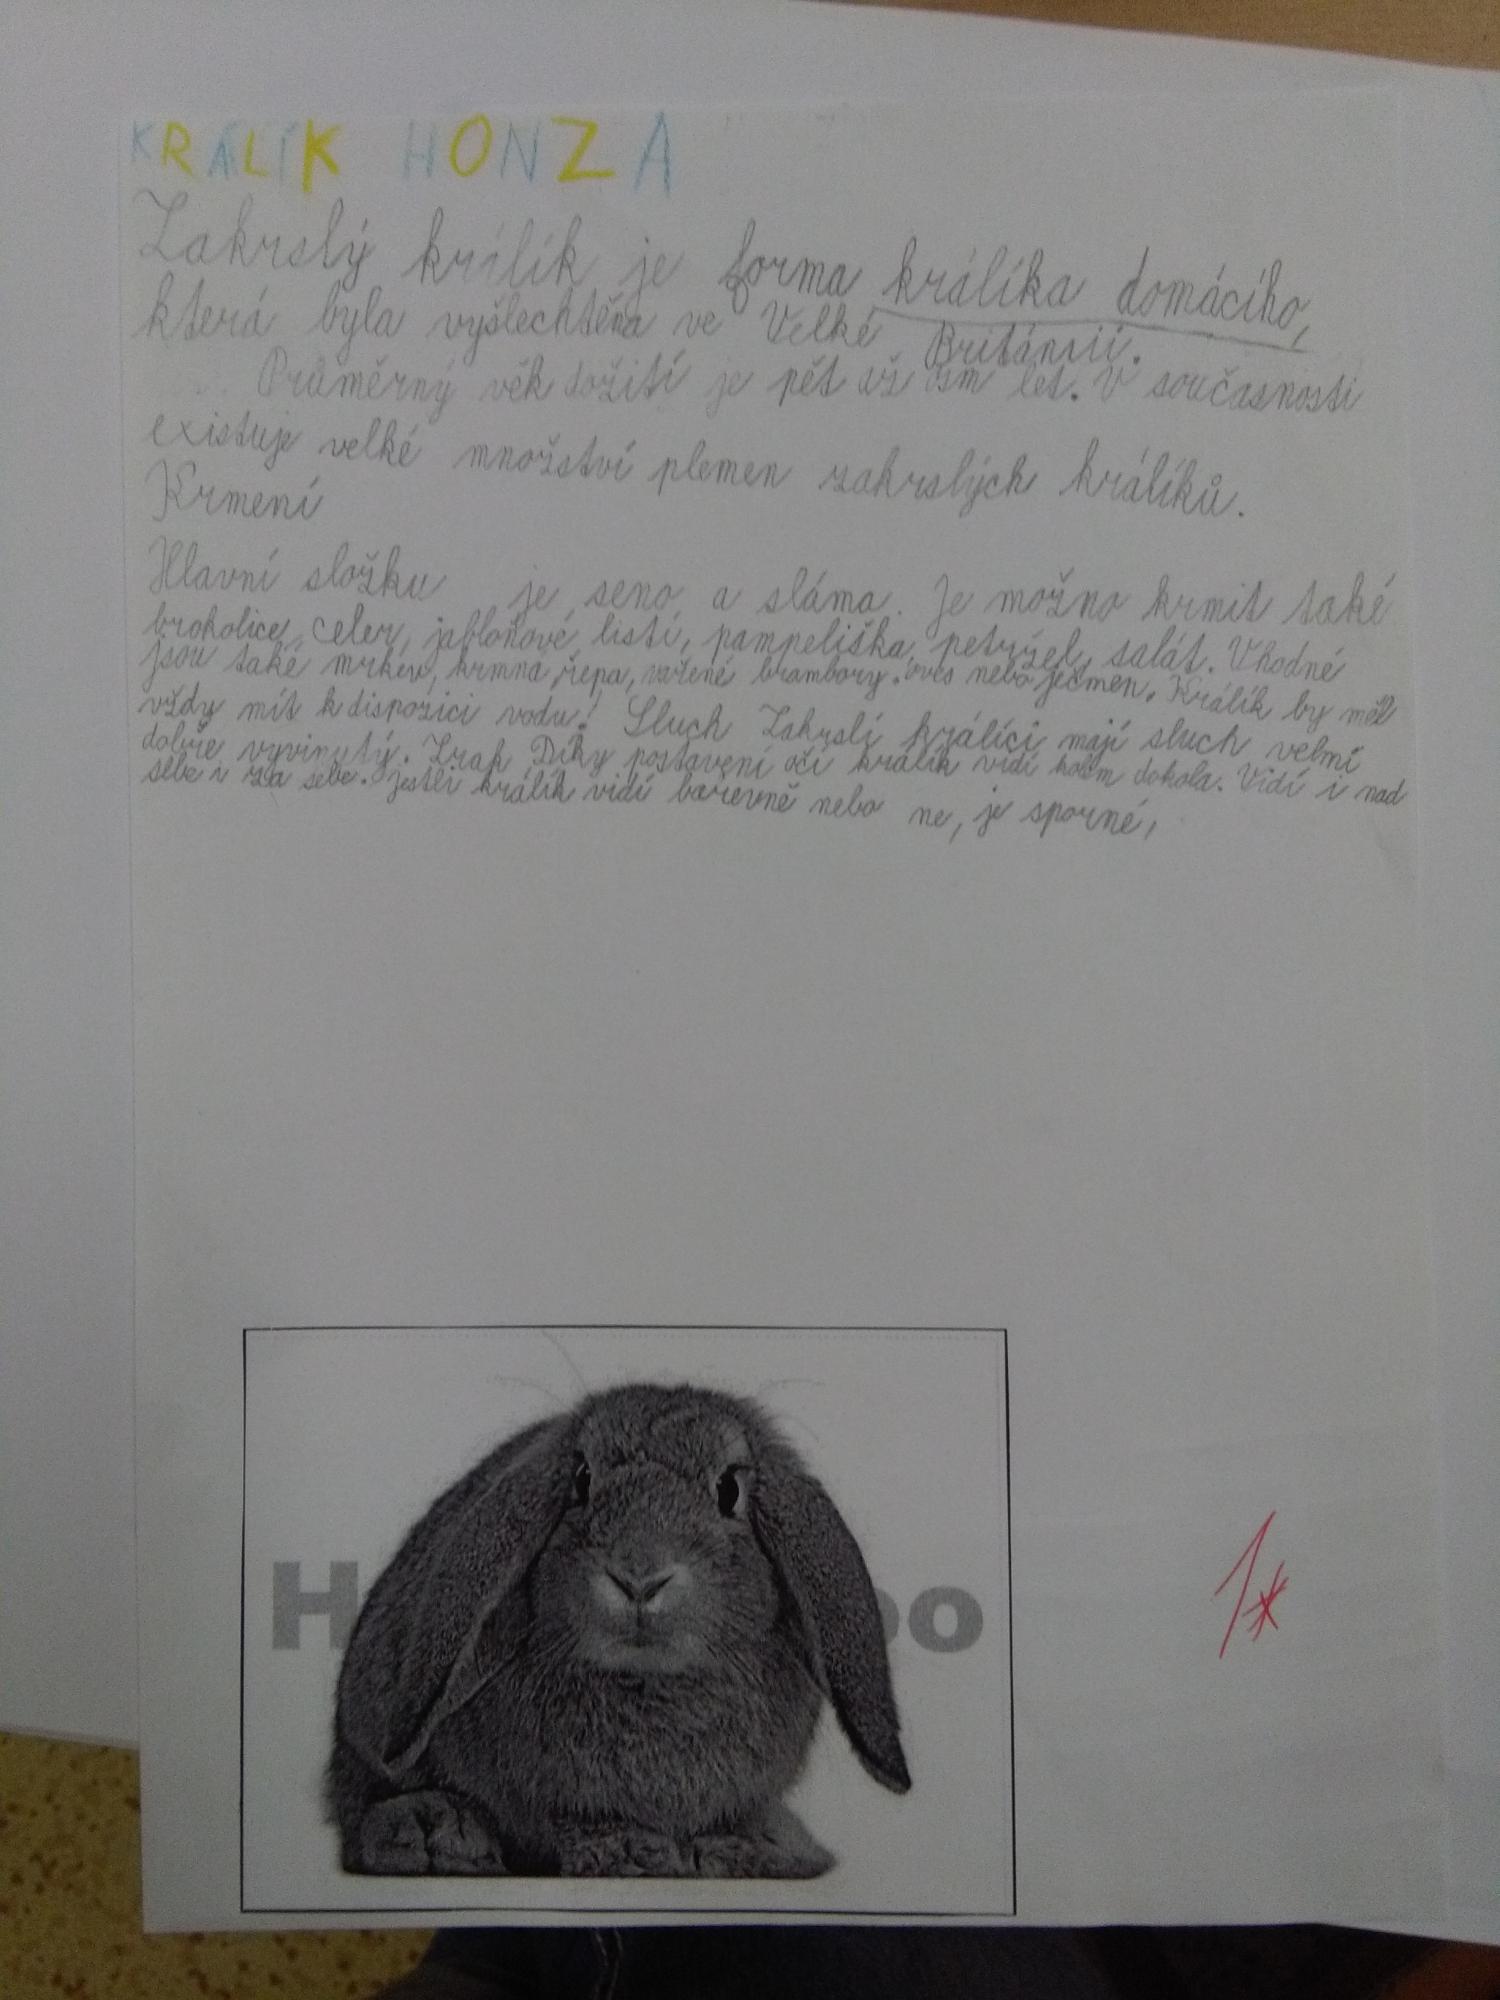 KRÁLÍK HONZA
Zakrslý krílík je forma králíka domácího,
která byla vyšlechtěna ve Velké
Británii.
Průměrný věk dožití je pět až osm let. V současnosti
existuje velké množství plemen zakrslých králíků.
Krmení
Hlavní složku je seno a sláma. Je možno krmit také
brokolice, celer, jabloňové listí, pampeliška, petržel, salát. Vhodné
jsou také mrkev, krmná řepa, vařené brambory. oves nebo ječmen. Králík by měl
vždy mít k dispozici vodu! Sluch Zakrslí králíci mají sluch velmi
dobře vyvinutý. Zrak Díky postavení očí králík vidí kolem dokola. Vidí i nad
sebe i za sebe. jestli králík vidí barevně nebo ne, je sporné,
H oo
1*